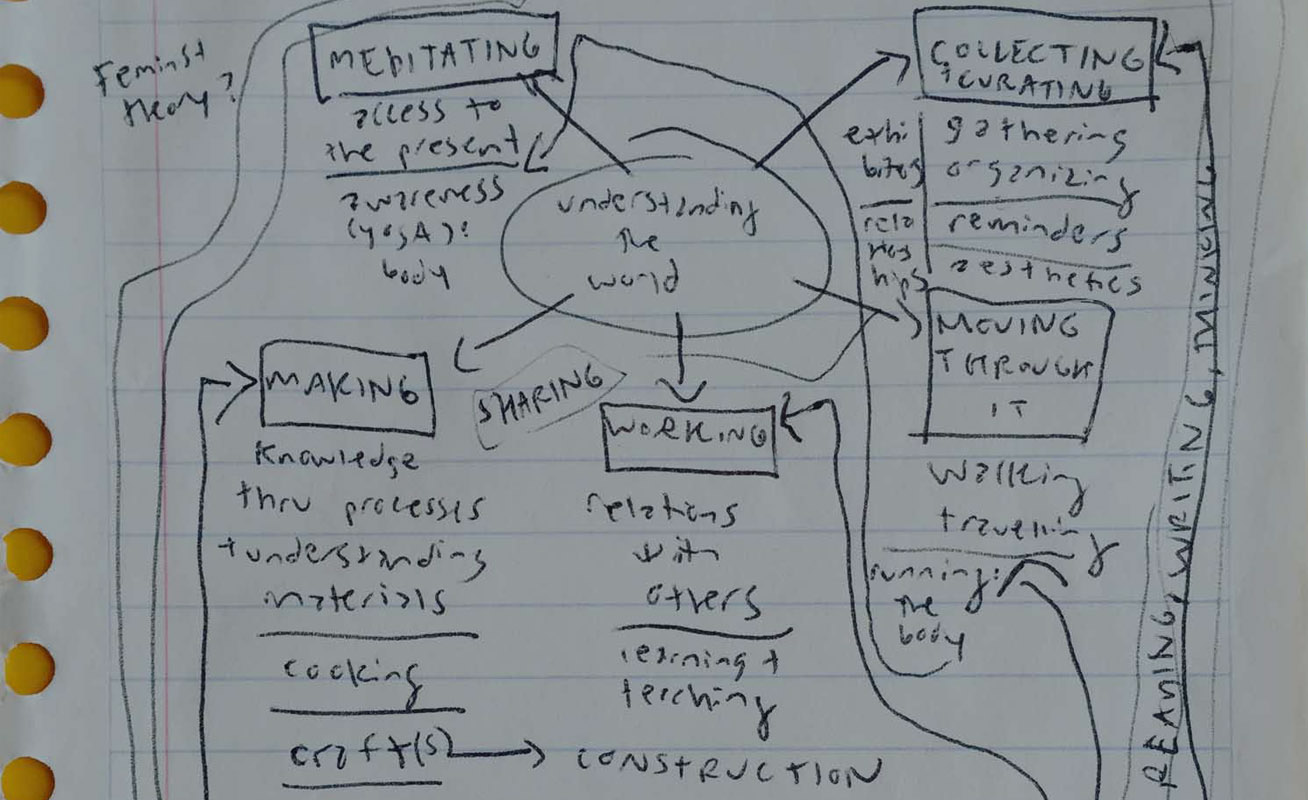 Feminst
theory?
MEDITATING
access to
the present
awareness
(yogA):
body
understanding
the
world
COLLECTING
+CURATING
exhi
bites
gathering
organizing
reminders
aesthetics
hips
MOVING
THROUGH
IT
walking
travelling
running:
the
body
MAKING
knowledge
thru processes
+understanding
materials
cooking
craft(s)
CONSTRUCTION
SHARING
WORKING
relations
with
others
learning +
teaching
WRITING,